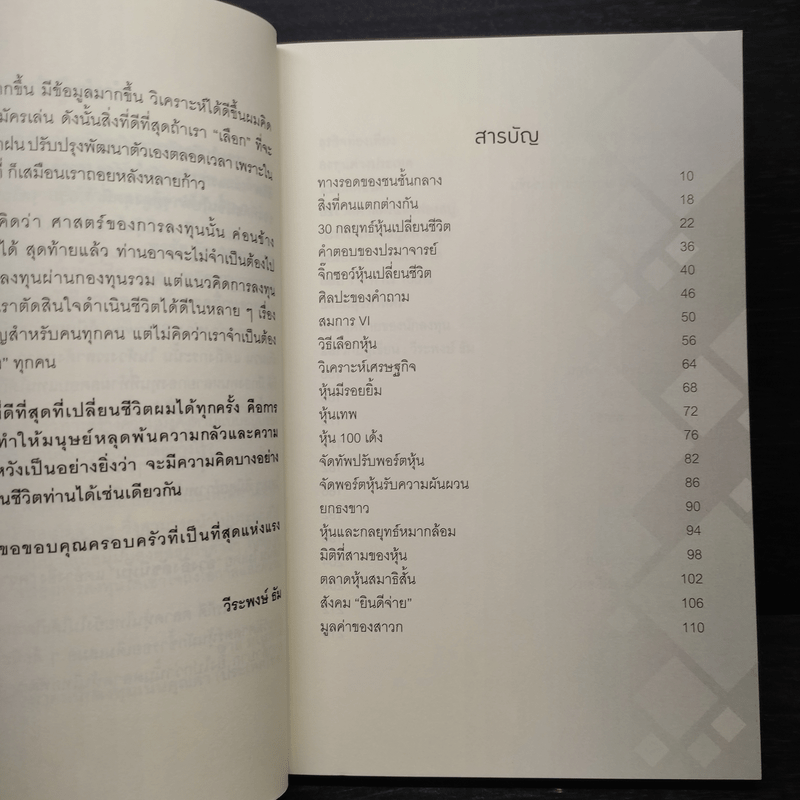 ากขึ้น มีข้อมูลมากขึ้น วิเคราะห์ได้ดีขึ้นผมคิด
มัครเล่น ดังนั้นสิ่งที่ดีที่สุดถ้าเรา "เลือก" ที่จะ
าฝน ปรับปรุงพัฒนาตัวเองตลอดเวลา เพราะใน
ที่ ก็เสมือนเราถอยหลังหลายก้าว
คิดว่า ศาสตร์ของการลงทุนนั้น ค่อนข้าง
ได้ สุดท้ายแล้ว ท่านอาจจะไม่จำเป็นต้องไป
ลงทุนผ่านกองทุนรวม แต่แนวคิดการลงทุน
ราตัดสินใจดำเนินชีวิตได้ดีในหลาย ๆ เรื่อง
ญสำหรับคนทุกคน แต่ไม่คิดว่าเราจำเป็นต้อง
" ทุกคน
ที่ดีที่สุดที่เปลี่ยนชีวิตผมได้ทุกครั้ง คือการ
ทำให้มนุษย์หลุดพ้นความกลัวและความ
หวังเป็นอย่างยิ่งว่า จะมีความคิดบางอย่าง
นชีวิตท่านได้เช่นเดียวกัน
ขอขอบคุณครอบครัวที่เป็นที่สุดแห่งแรง
วีระพงษ์ ธัม
สารบัญ
ทางรอดของชนชั้นกลาง 10
สิ่งที่คนแตกต่างกัน 18
30 กลยุทธ์หุ้นเปลี่ยนชีวิต 22
คำตอบของปรมาจารย์ 36
จิ๊กซอว์หุ้นเปลี่ยนชีวิต 40
ศิลปะของคำถาม 46
สมการ VI 50
วิธีเลือกหุ้น 56
วิเคราะห์เศรษฐกิจ 64
หุ้นมีรอยยิ้ม 68
หุ้นเทพ 72
หุ้น 100 เด้ง 76
จัดทัพปรับพอร์ตหุ้น 82
จัดพอร์ตหุ้นรับความผันผวน 86
ยกธงขาว 90
หุ้นและกลยุทธ์หมากล้อม 94
มิติที่สามของหุ้น 98
ตลาดหุ้นสมาธิสั้น 102
สังคม "ยินดีจ่าย" 106
มูลค่าของสาวก 110